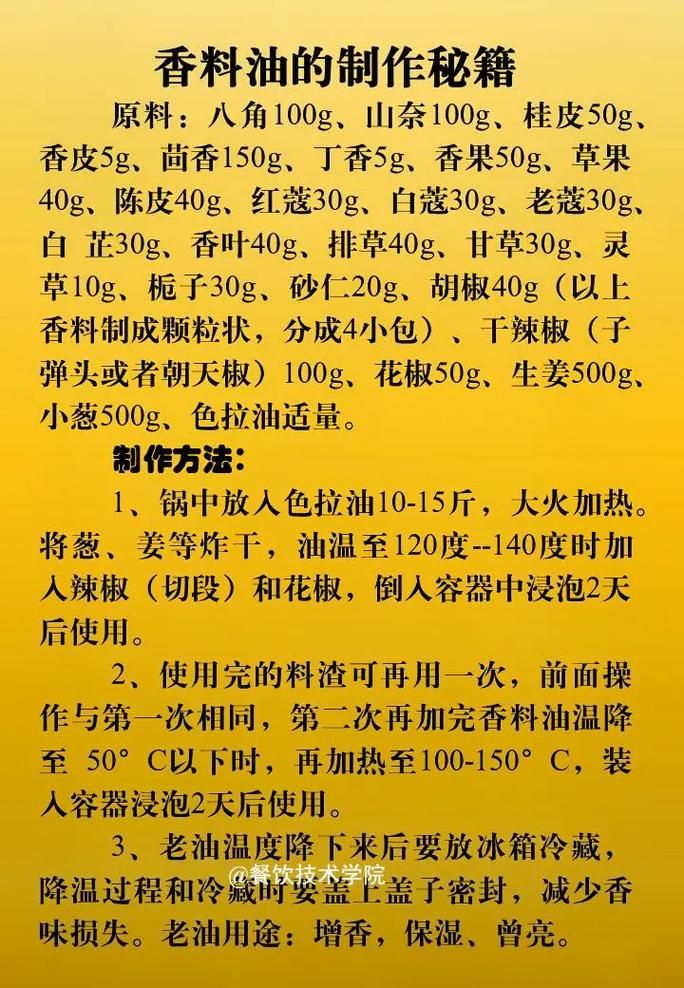 香料油的制作秘籍
原料：八角100g、山奈100g、桂皮50g、
香皮5g、茴香150g、丁香5g、香果50g、草果
40g、陈皮40g、红蔻30g、白蔻30g、老蔻30g、
白 芷30g、香叶40g、排草40g、甘草30g、灵
草10g、栀子30g、砂仁20g、胡椒40g（以上
香料制成颗粒状，分成4小包）、干辣椒（子
弹头或者朝天椒）100g、花椒50g、生姜500g、
小葱500g、色拉油适量。
制作方法：
1、锅中放入色拉油10-15斤，大火加热。
将葱、姜等炸干，油温至120度--140度时加
入辣椒（切段）和花椒，倒入容器中浸泡2天
后使用。
2、使用完的料渣可再用一次，前面操
作与第一次相同，第二次再加完香料油温降
至 50°C以下时，再加热至100-150°C，装
入容器浸泡2天后使用。
3、老油温度降下来后要放冰箱冷藏，
@餐饮技术学院
降温过程和冷藏时要盖上盖子密封，减少香
味损失。老油用途：增香，保湿、曾亮。